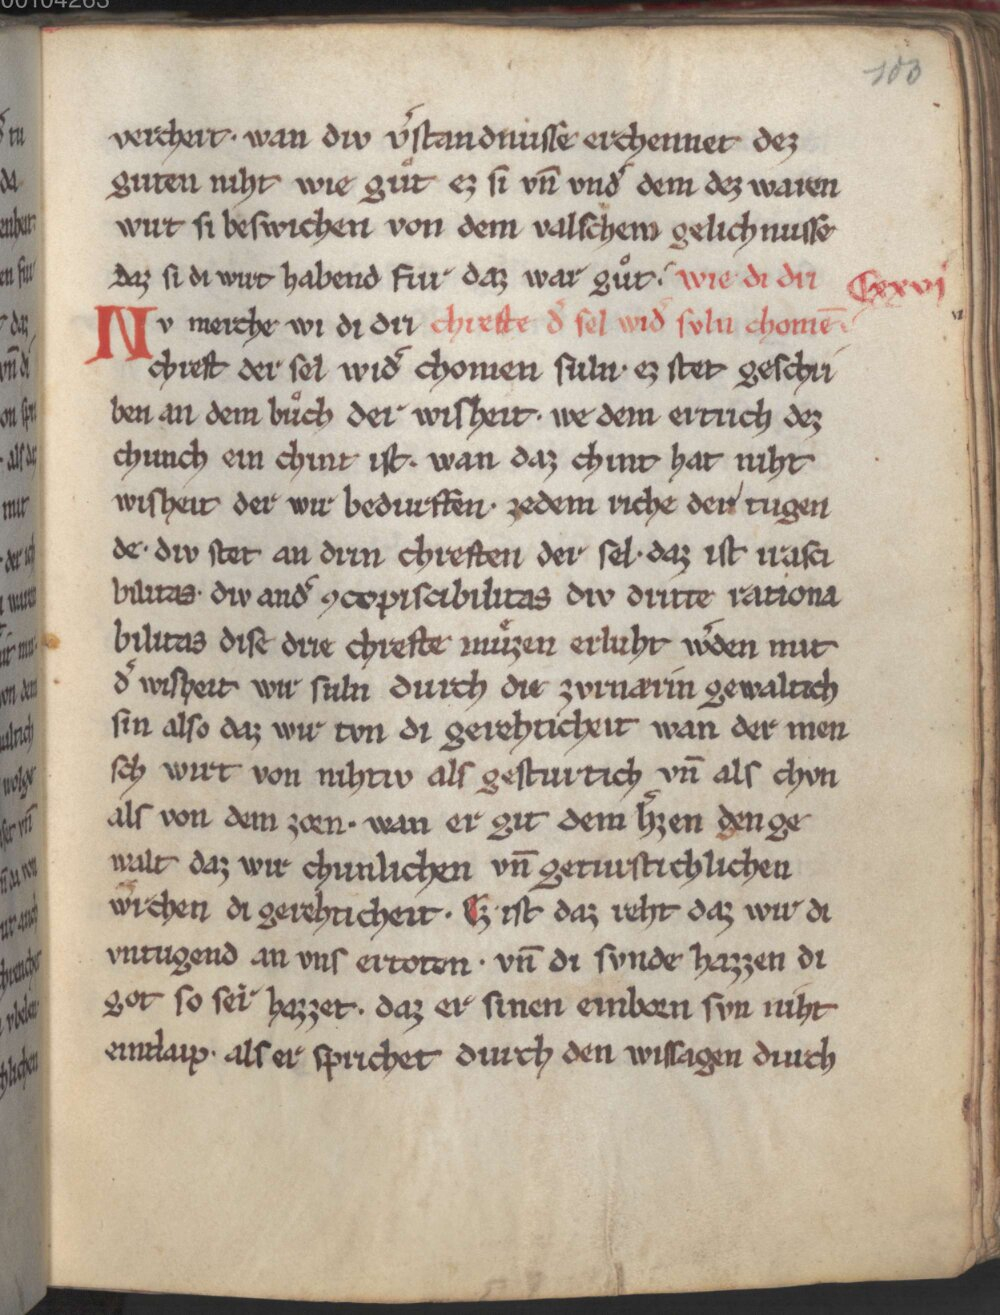 103
vercheit· wan div v͛standnusse erchennet dez
guten niht wie guͦt ez si vn̄ vnd͛ dem dez waren
wirt si beswichen von dem valschem gelichnusse
daz si di wirt habend fur daz war guͦt· wie di dri
Cxxvi
Nv merche wi di dri chrefte d͛ sel wid͛ svln chomē
chreft der sel wid͛ chomen suln· ez stet geschri
ben an dem buͦch der wisheit· we dem ertrich dez
chunch ein chint ist· wan daz chint hat niht
wisheit der wir bedurffen· zedem riche der tugen
de· div stet an drin chreften der sel· daz ist irasci
bilitas· div and͛ ꝯcopiscibilitas div dritte rationa
bilitas dise drie chrefte muͤzen erluht w͛den mit
d͛ wisheit wir suln durch die zvrnærin gewaltich
sin also daz wir tvn di gerehticheit wan der men
sch wirt von nihtiv als gesturtich vn̄ als chvn
als von dem zorn· wan er git dem h͛zen den ge
walt daz wir chunlichen vn̄ geturstichlichen
wrchen di gerehticheit· Ez ist daz reht daz wir di
vntugend an vns ertoten· vn̄ di svnde hazzen di
got so ser hazzet· daz er sinen einborn svn niht
entlaip· als er sprichet durch den wissagen durch